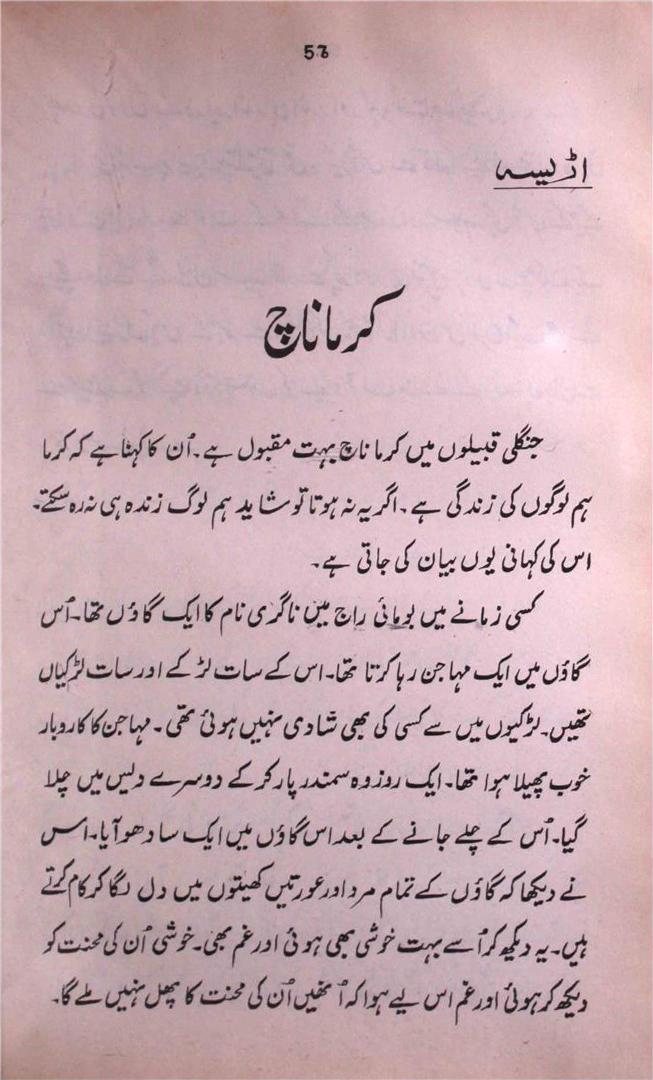 57
اڑیسہ
کرما ناچ
جنگلی قبیلوں میں کرما ناچ بہت مقبول ہے۔ اُن کا کہنا ہے کہ کرما
ہم لوگوں کی زندگی ہے۔ اگر یہ نہ ہوتا تو شاید ہم لوگ زندہ ہی نہ رہ سکتے۔
اس کی کہانی یوں بیان کی جاتی ہے۔
کسی زمانے میں بومائی راج میں ناگری نام کا ایک گاؤں تھا۔ اُس
گاؤں میں ایک مہاجن رہا کرتا تھا۔ اس کے سات لڑکے اور سات لڑکیاں
تھیں۔ لڑکیوں میں سے کسی کی بھی شادی نہیں ہوئی تھی۔ مہاجن کا کاروبار
خوب پھیلا ہوا تھا۔ ایک روز وہ سمندر پار کر کے دوسرے دیس میں چلا
گیا۔ اُس کے چلے جانے کے بعد اس گاؤں میں ایک سادھو آیا۔ اس
نے دیکھا کہ گاؤں کے تمام مرد اور عورتیں کھیتوں میں دل لگا کر کام کرتے
ہیں۔ یہ دیکھ کر اُسے بہت خوشی بھی ہوئی اور غم بھی۔ خوشی اُن کی محنت کو
دیکھ کر ہوئی اور غم اس لیے ہوا کہ اُنھیں اُن کی محنت کا پھل نہیں ملے گا۔